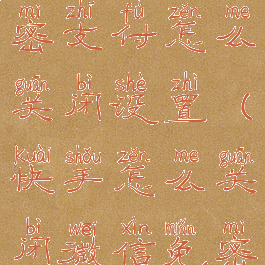 mì zhī fù zěn me
密支付怎么
guān bì shè zhì
关闭设置（
kuài shǒu zěn me guān
快手怎么关
bì wēi xìn miǎn mì
闭微信免密